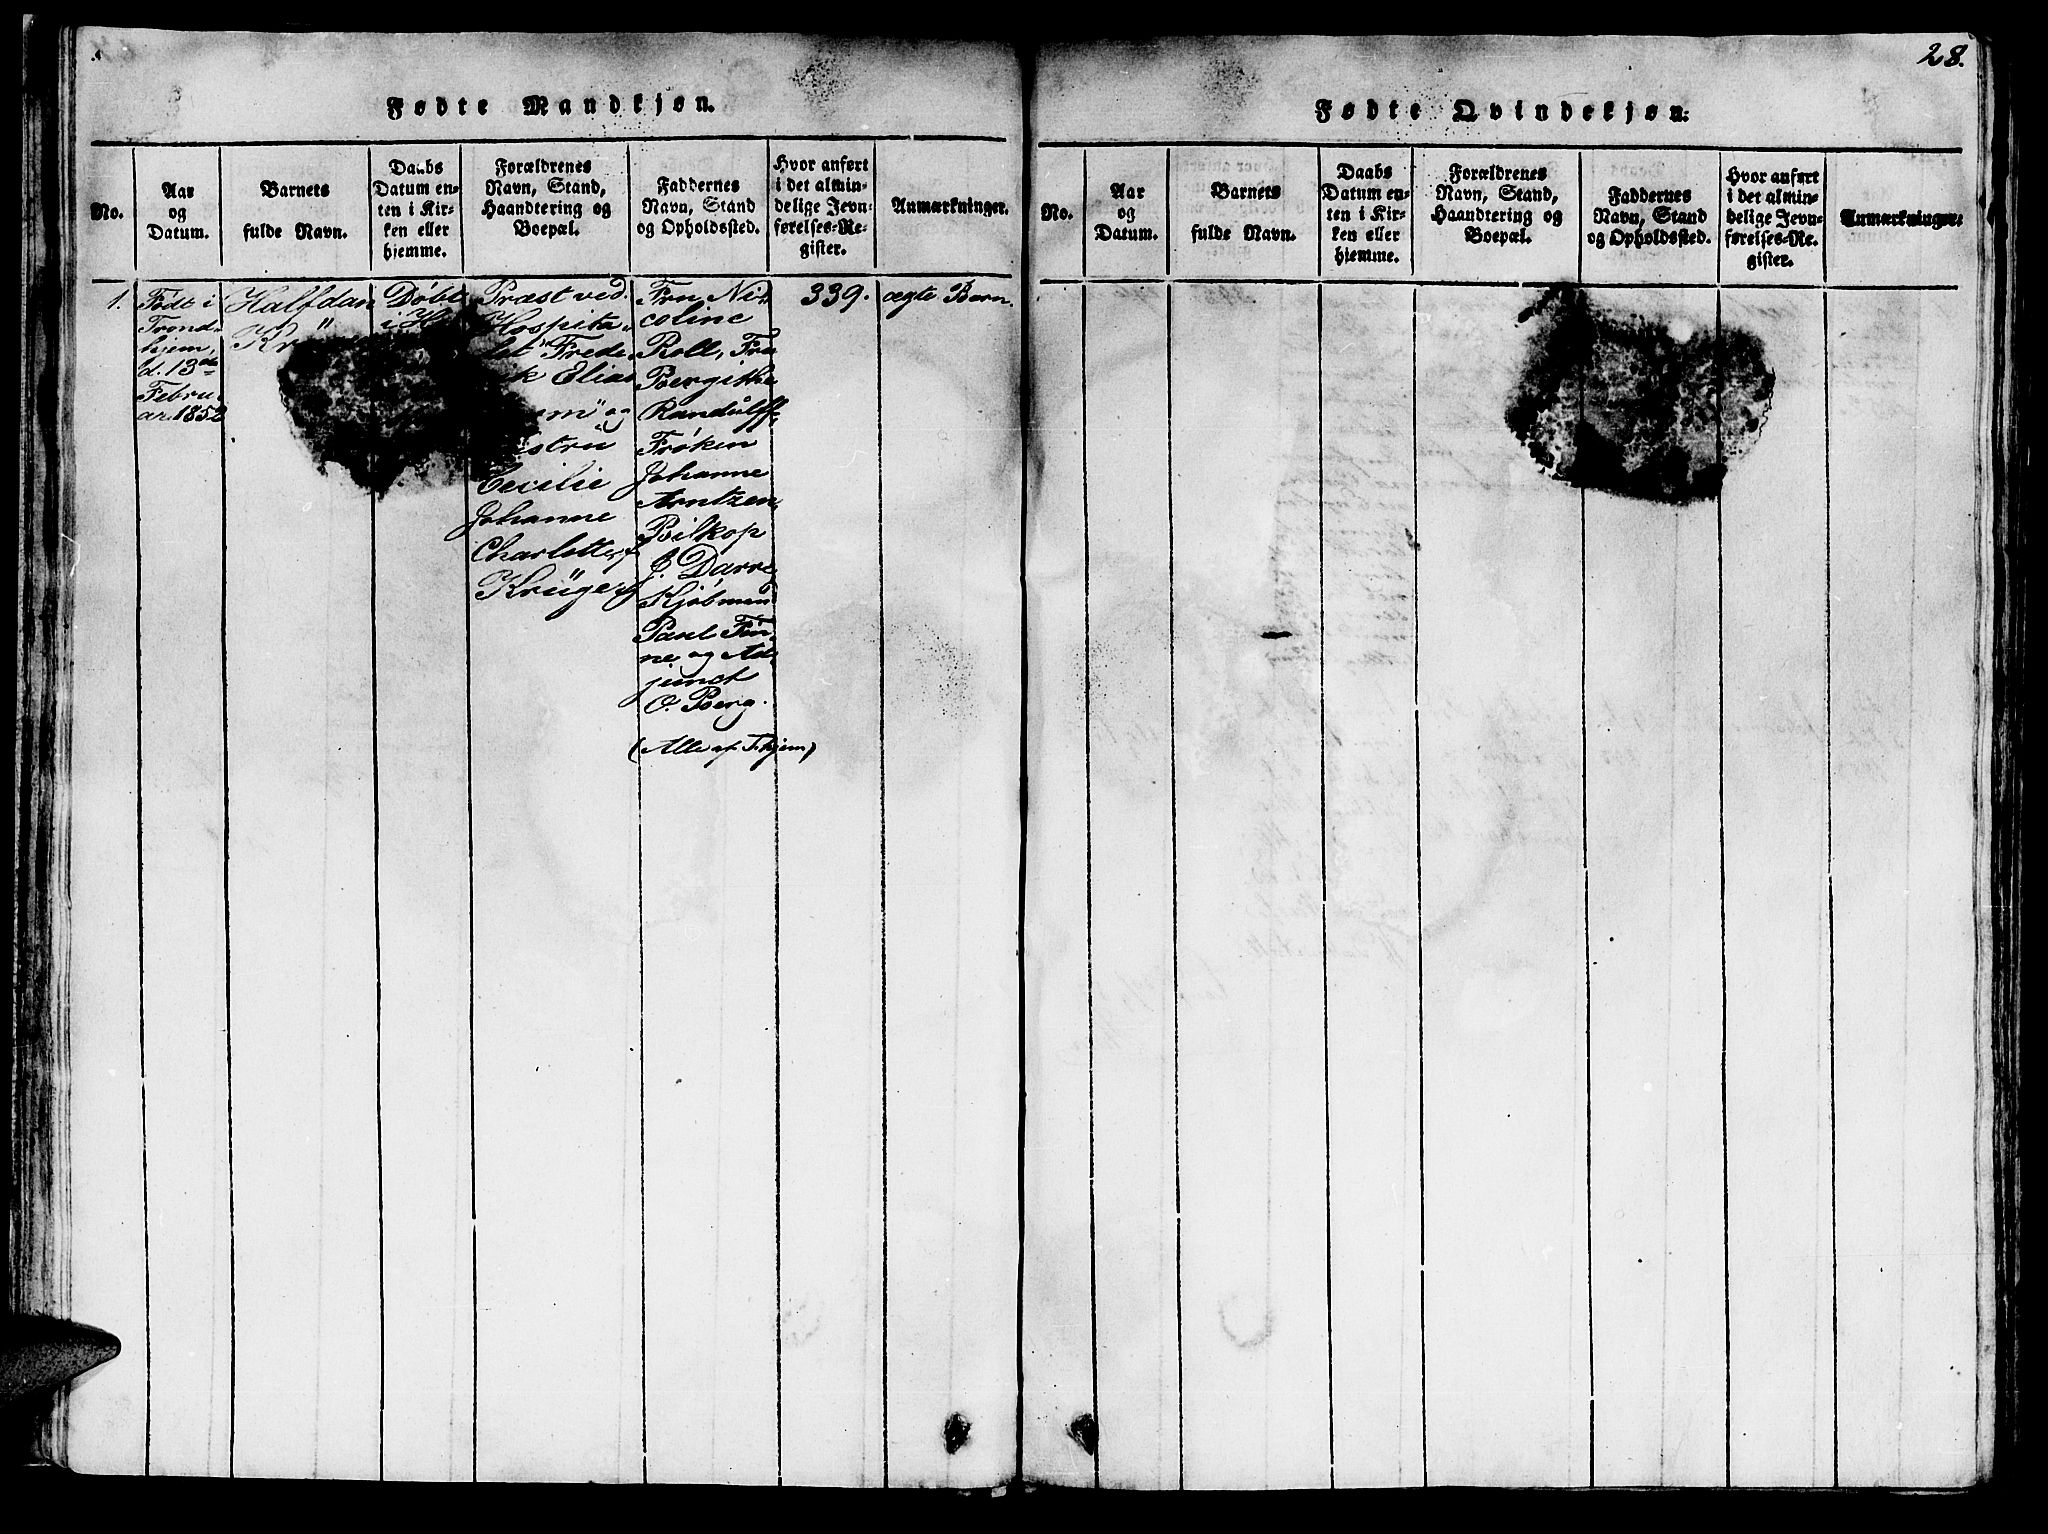 28.
Fødte Mandkjøn.
No.
Aar
og
Datum.
Barnets
fulde Navn.
Daabs
Datum en-
ten i Kir-
ken eller
hjemme.
Forældrenes
Navn, Stand,
Haandtering og
Boepæl.
Faddernes
Navn, Stand
og Opholdssted.
Hvor anført
i det almin-
delige Jevn-
førelses-Re-
gister.
Anmærkninger.
1.
Født i
Trond-
hjem,
d. 13de
Febru-
ar 1852
Halfdan
Døbt
Præst ved
Hospita-
Frede
Elias
og
Cecilie
Johanne
Charlotte,
Krüger
Fru Ni-
coline
Roll, Fru
Bergithe
Randulff,
Frøken
Johanne
Arntzen,
Biskop
J. Darre,
Kjøbmand
Paul Fin-
ne, og Ad-
junct
O. Berg.
(Alle af T.hjem)
339.
ægte Barn.
Fødte Qvindekjøn.
No.
Aar
og
Datum.
Barnets
fulde Navn.
Daabs
Datum en-
ten i Kir-
ken eller
hjemme.
Forældrenes
Navn, Stand,
Haandtering og
Boepæl.
Faddernes
Navn, Stand
og Opholdssted.
Hvor anført
i det almin-
delige Jevn-
førelses-Re-
gister.
Anmærkninger.